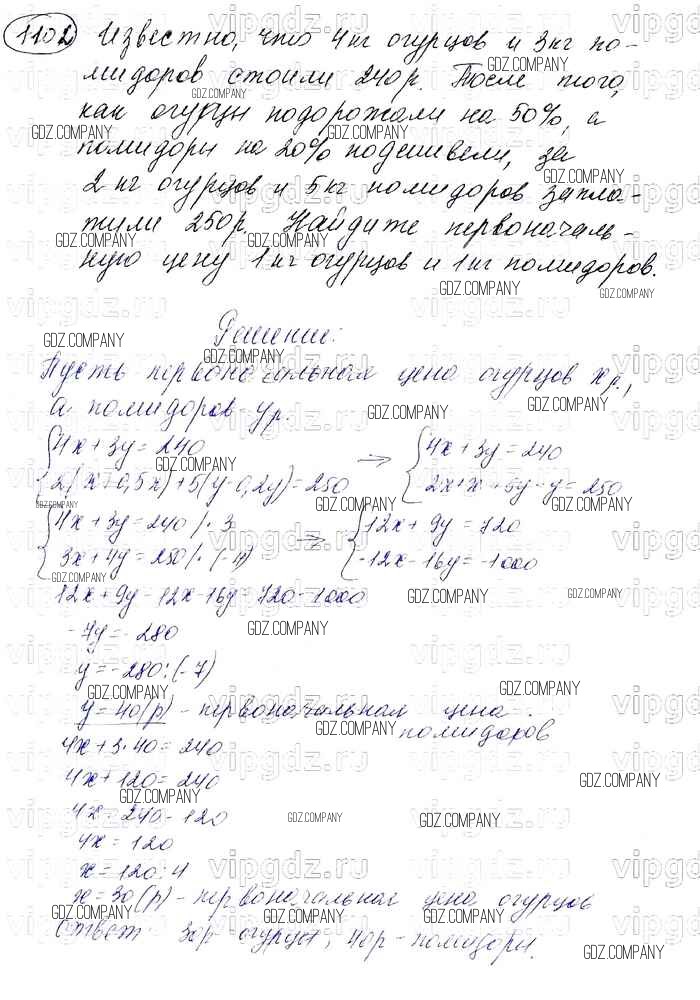 1102 Известно, что 4кг огурцов и 3кг по-
мидоров стоили 240р. После того,
как огурцы подорожали на 50%, а
помидоры на 20% подешевели, за
2 кг огурцов и 5кг помидоров запла-
тили 250р. Найдите первоначаль-
ную цену 1кг огурцов и 1кг помидоров.
Решение:
Пусть первоначальная цена огурцов xр.,
а помидоров - yр.
4x + 3y = 240 → 4x + 3y = 240
2(x+0,5x)+5(y-0,2y)=250 2x+x+5y-y=250
4x + 3y = 240 |· 3 → 12x + 9y = 720
3x + 4y = 250 |· (-4) -12x - 16y = -1000
12x + 9y - 12x - 16y = 720 - 1000
-7y = -280
y = -280 : (-7)
y = 40(р) - первоначальная цена
помидоров
4x + 3·40 = 240
4x + 120 = 240
4x = 240 - 120
4x = 120
x = 120 : 4
x = 30(р) - первоначальная цена огурцов
Ответ: 30р - огурцы, 40р - помидоры.
vipgdz.ru
GDZ.COMPANY